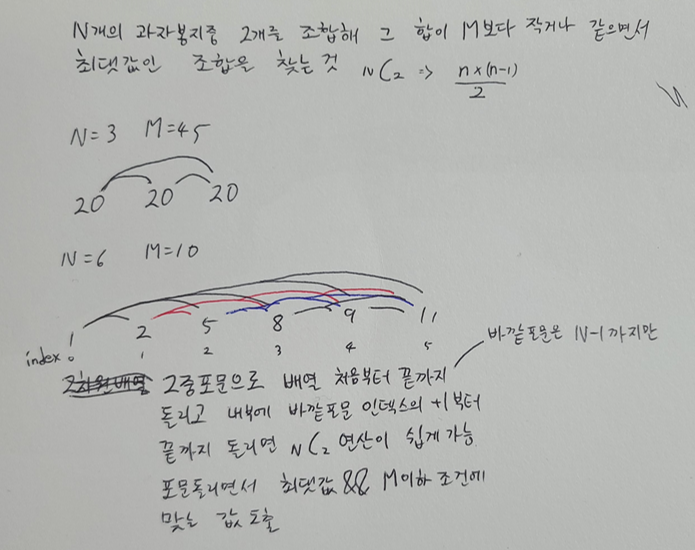 N개의 과자봉지중 2개를 조합해 그 합이 M보다 작거나 같으면서
최댓값인 조합을 찾는 것 NC2 => n×(n-1)/2
N=3 M=45
20 20 20
N=6 M=10
1 2 5 8 9 11
index 0 1 2 3 4 5
바깥포문은 N-1까지만
2차원배열 2중포문으로 배열 처음부터 끝까지
돌리고 내부에 바깥포문 인덱스의 +1부터
끝까지 돌리면 NC2 연산이 쉽게 가능
포문돌리면서 최댓값 && M이하 조건에
맞는 값 도출